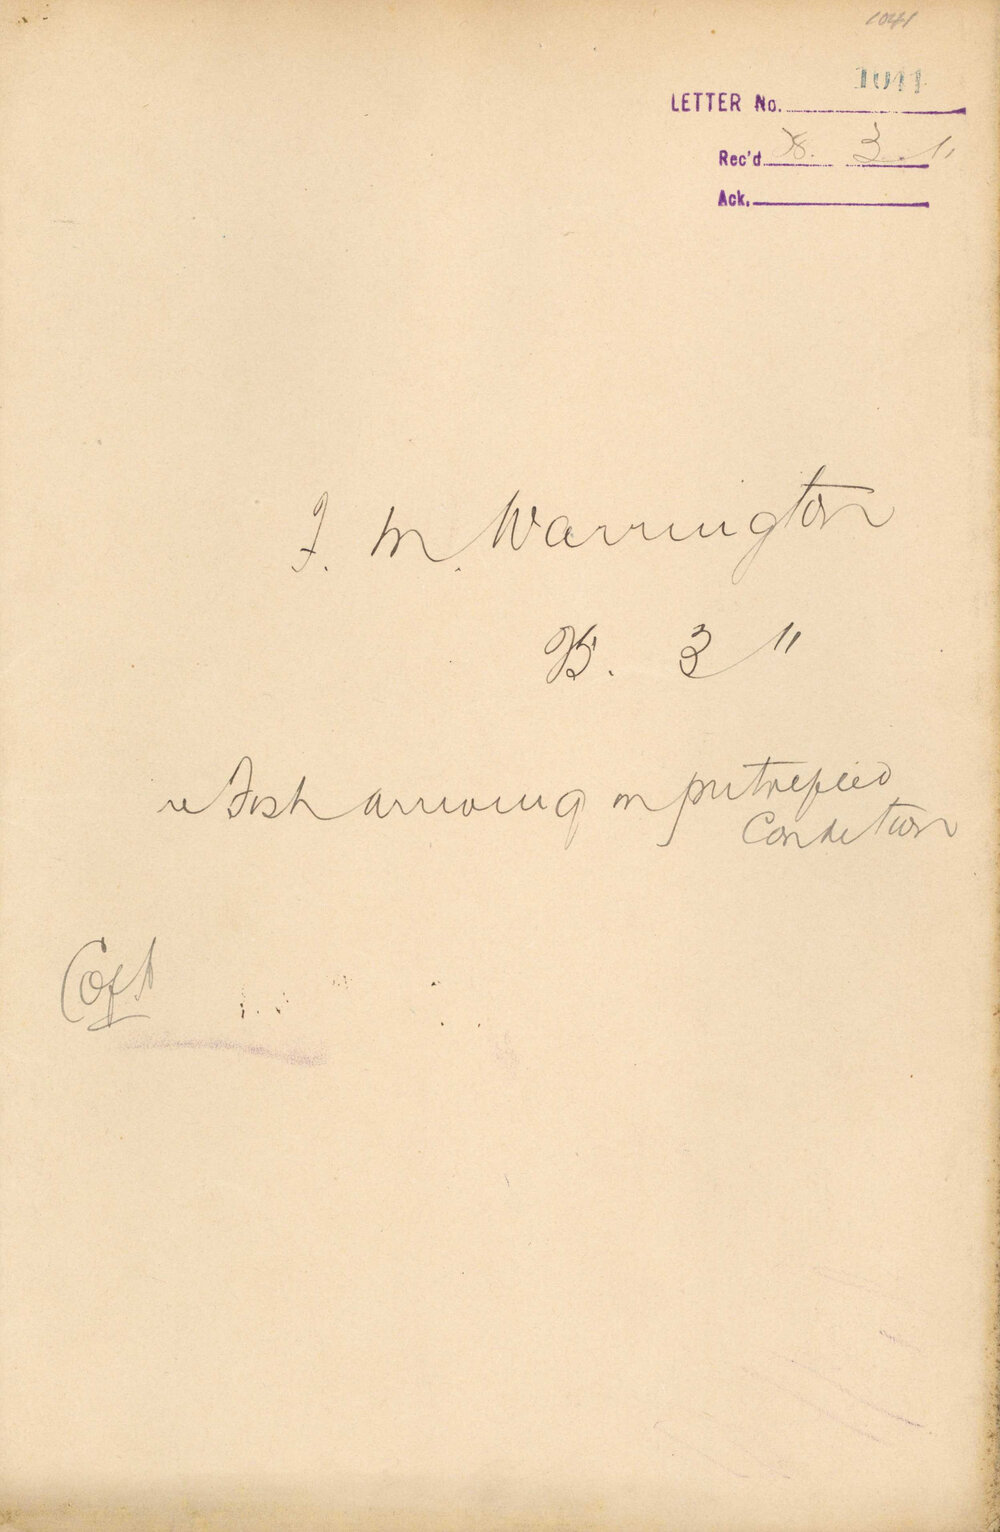 1041
1041
LETTER No.
Rec'd 8. 3. 11
Ack.
F. M. Warrington
3 11
re Fish arriving in putrefied
Condition